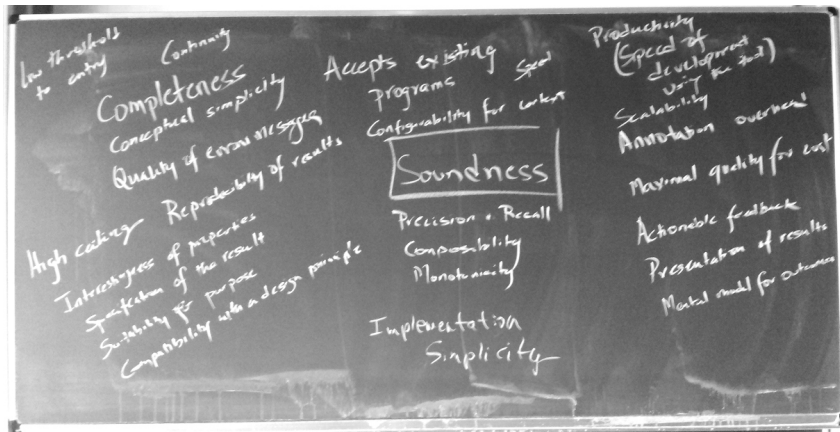 Low threshold
to entry
Continuity
Completeness
Conceptual simplicity
Quality of error messages
Reproducibility of results
High ceiling
Interestingness of properties
Specification of the result
Suitability for purpose
Compatibility with a design principle
Accepts existing
programs
Speed
Configurability for context
Soundness
Precision + Recall
Composibility
Monotonicity
Implementation
Simplicity
Productivity
(Speed of
development
using the tool)
Scalability
Annotation overhead
Maximal quality for cost
Actionable feedback
Presentation of results
Mental model for outcomes